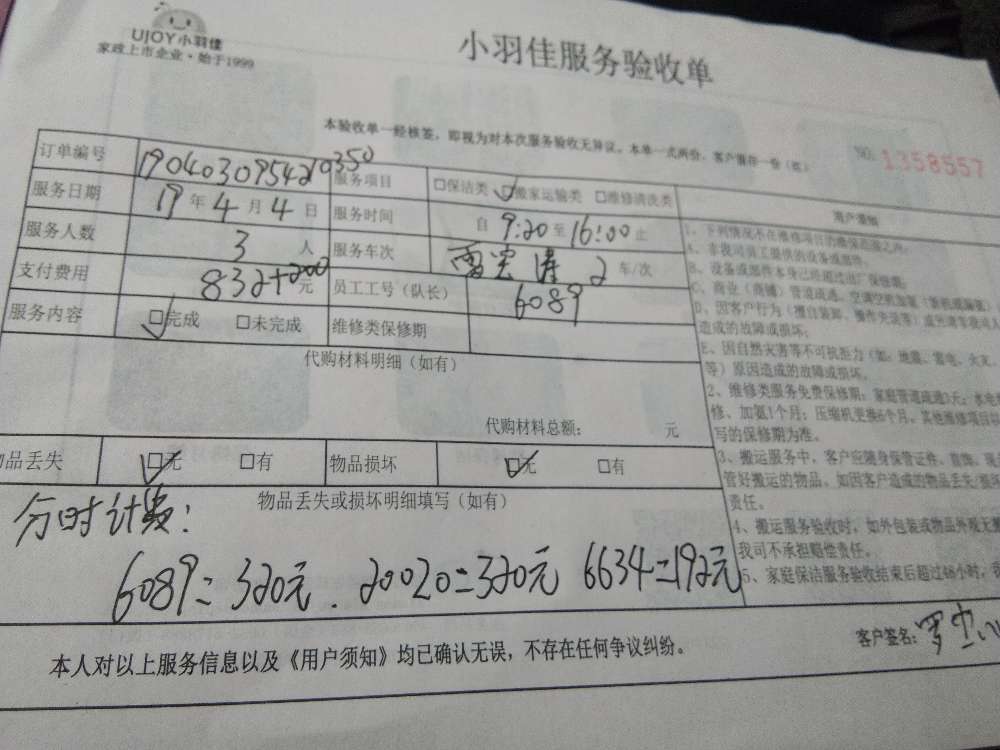 UJOY小羽佳
家政上市企业·始于1999
小羽佳服务验收单
本验收单一经核签，即视为对本次服务验收无异议。本单一式两份，客户留存一份
NO. 1358557
订单编号 190403095420350 服务项目 □保洁类 ☑搬家运输类 □维修清洗类
服务日期 19年4月4日 服务时间 自9:20至16:00止
服务人数 3人 服务车次 2车/次
支付费用 832+200元 员工工号（队长） 6089
服务内容 ☑完成 □未完成 维修类保修期
代购材料明细（如有）
代购材料总额： 元
物品丢失 ☑无 □有 物品损坏 ☑无 □有
物品丢失或损坏明细填写（如有）
分时计费：
6089=320元．20020=320元 6634=192元
用户须知
1、下列情况不在维修项目的维保范围之内：
A、非我司员工提供的设备或部件。
B、设备或部件本身已经超过出厂保修期；
造成的故障或损坏；
E、因自然灾害等不可抗拒力（如：地震、雷电、火灾、
等）原因造成的故障或损坏。
2、维修类服务免费保修期：家庭管道疏通3天；水电
修、加氨1个月；压缩机更换6个月。其他维修项目以
写的保修期为准。
3、搬运服务中，客户应随身保管证件、首饰、现
管好搬运的物品。如因客户造成的物品丢失/损
责任。
4、搬运服务验收时，如外包装或物品外观无
我司不承担赔偿责任。
5、家庭保洁服务验收结束后超过48小时，
本人对以上服务信息以及《用户须知》均已确认无误，不存在任何争议纠纷。
客户签名：